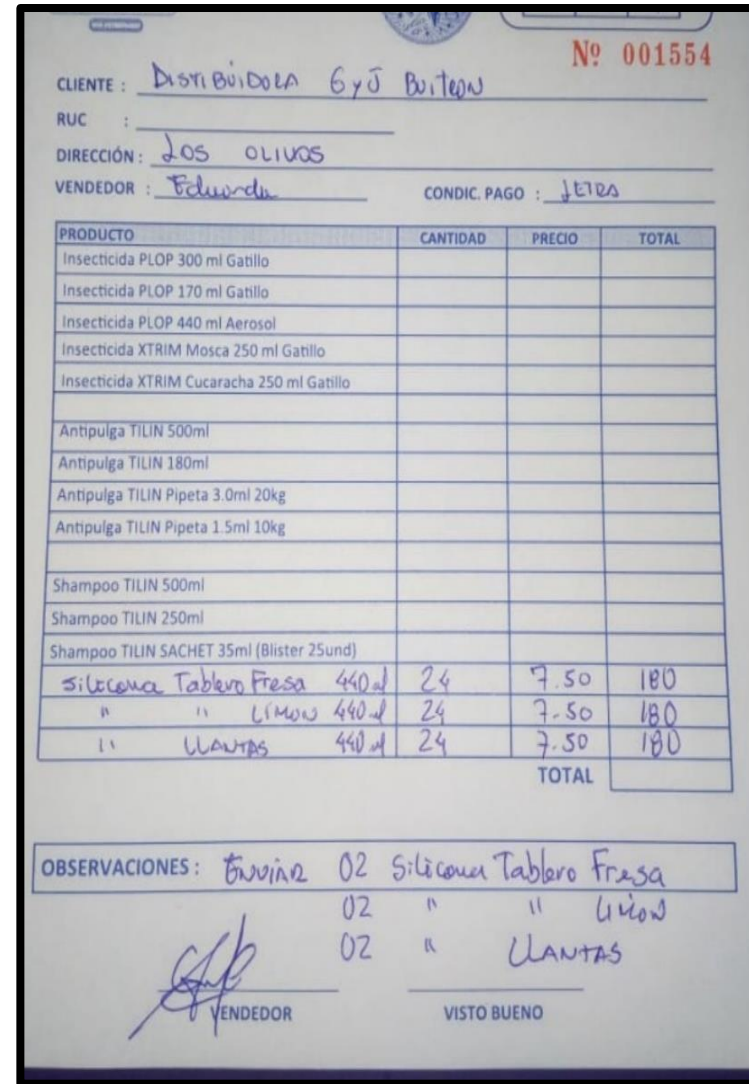 Nº 001554
CLIENTE : DISTRIBUIDORA G y J BUITRON
RUC :
DIRECCIÓN : LOS OLIVOS
VENDEDOR : Eduardo CONDIC. PAGO : LETRA
PRODUCTO CANTIDAD PRECIO TOTAL
Insecticida PLOP 300 ml Gatillo
Insecticida PLOP 170 ml Gatillo
Insecticida PLOP 440 ml Aerosol
Insecticida XTRIM Mosca 250 ml Gatillo
Insecticida XTRIM Cucaracha 250 ml Gatillo
Antipulga TILIN 500ml
Antipulga TILIN 180ml
Antipulga TILIN Pipeta 3.0ml 20kg
Antipulga TILIN Pipeta 1.5ml 10kg
Shampoo TILIN 500ml
Shampoo TILIN 250ml
Shampoo TILIN SACHET 35ml (Blister 25und)
Silicona Tablero Fresa 440 ml 24 7.50 180
" " LIMON 440 ml 24 7.50 180
" LLANTAS 440 ml 24 7.50 180
TOTAL
OBSERVACIONES : ENVIAR 02 Silicona Tablero Fresa
02 " " LIMON
02 " LLANTAS
VENDEDOR VISTO BUENO